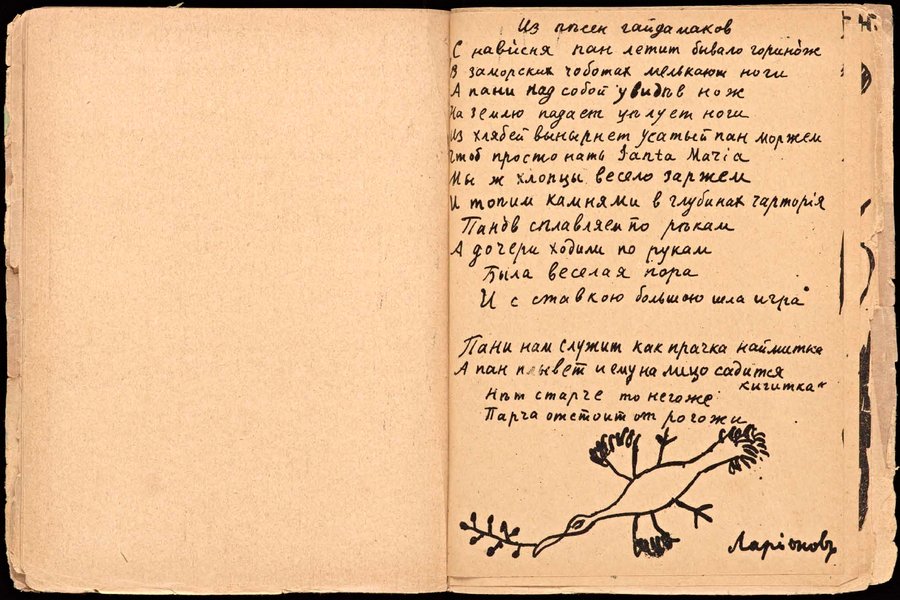 Из пѣсен гайдамаков
С нависня пан летит бывало горинож
В заморских чоботах мелькают ноги
А пани пад собой увидѣв нож
На землю падает цѣлует ноги
Из хлябей вынырнет усатый пан моржем
Чтоб простонать Santa Maria
Мы ж хлопцы весело заржем
И топим камнями в глубинах чарторія
Панов сплавляем по рѣкам
А дочери ходили по рукам
Была веселая пора
И с ставкою большою шла игра
Пани нам служит как прачка наймитка
А пан плывет и ему на лицо садится
кигитка
Нѣт старче то негоже
Парча отстоит от рогожи
Ларіонов